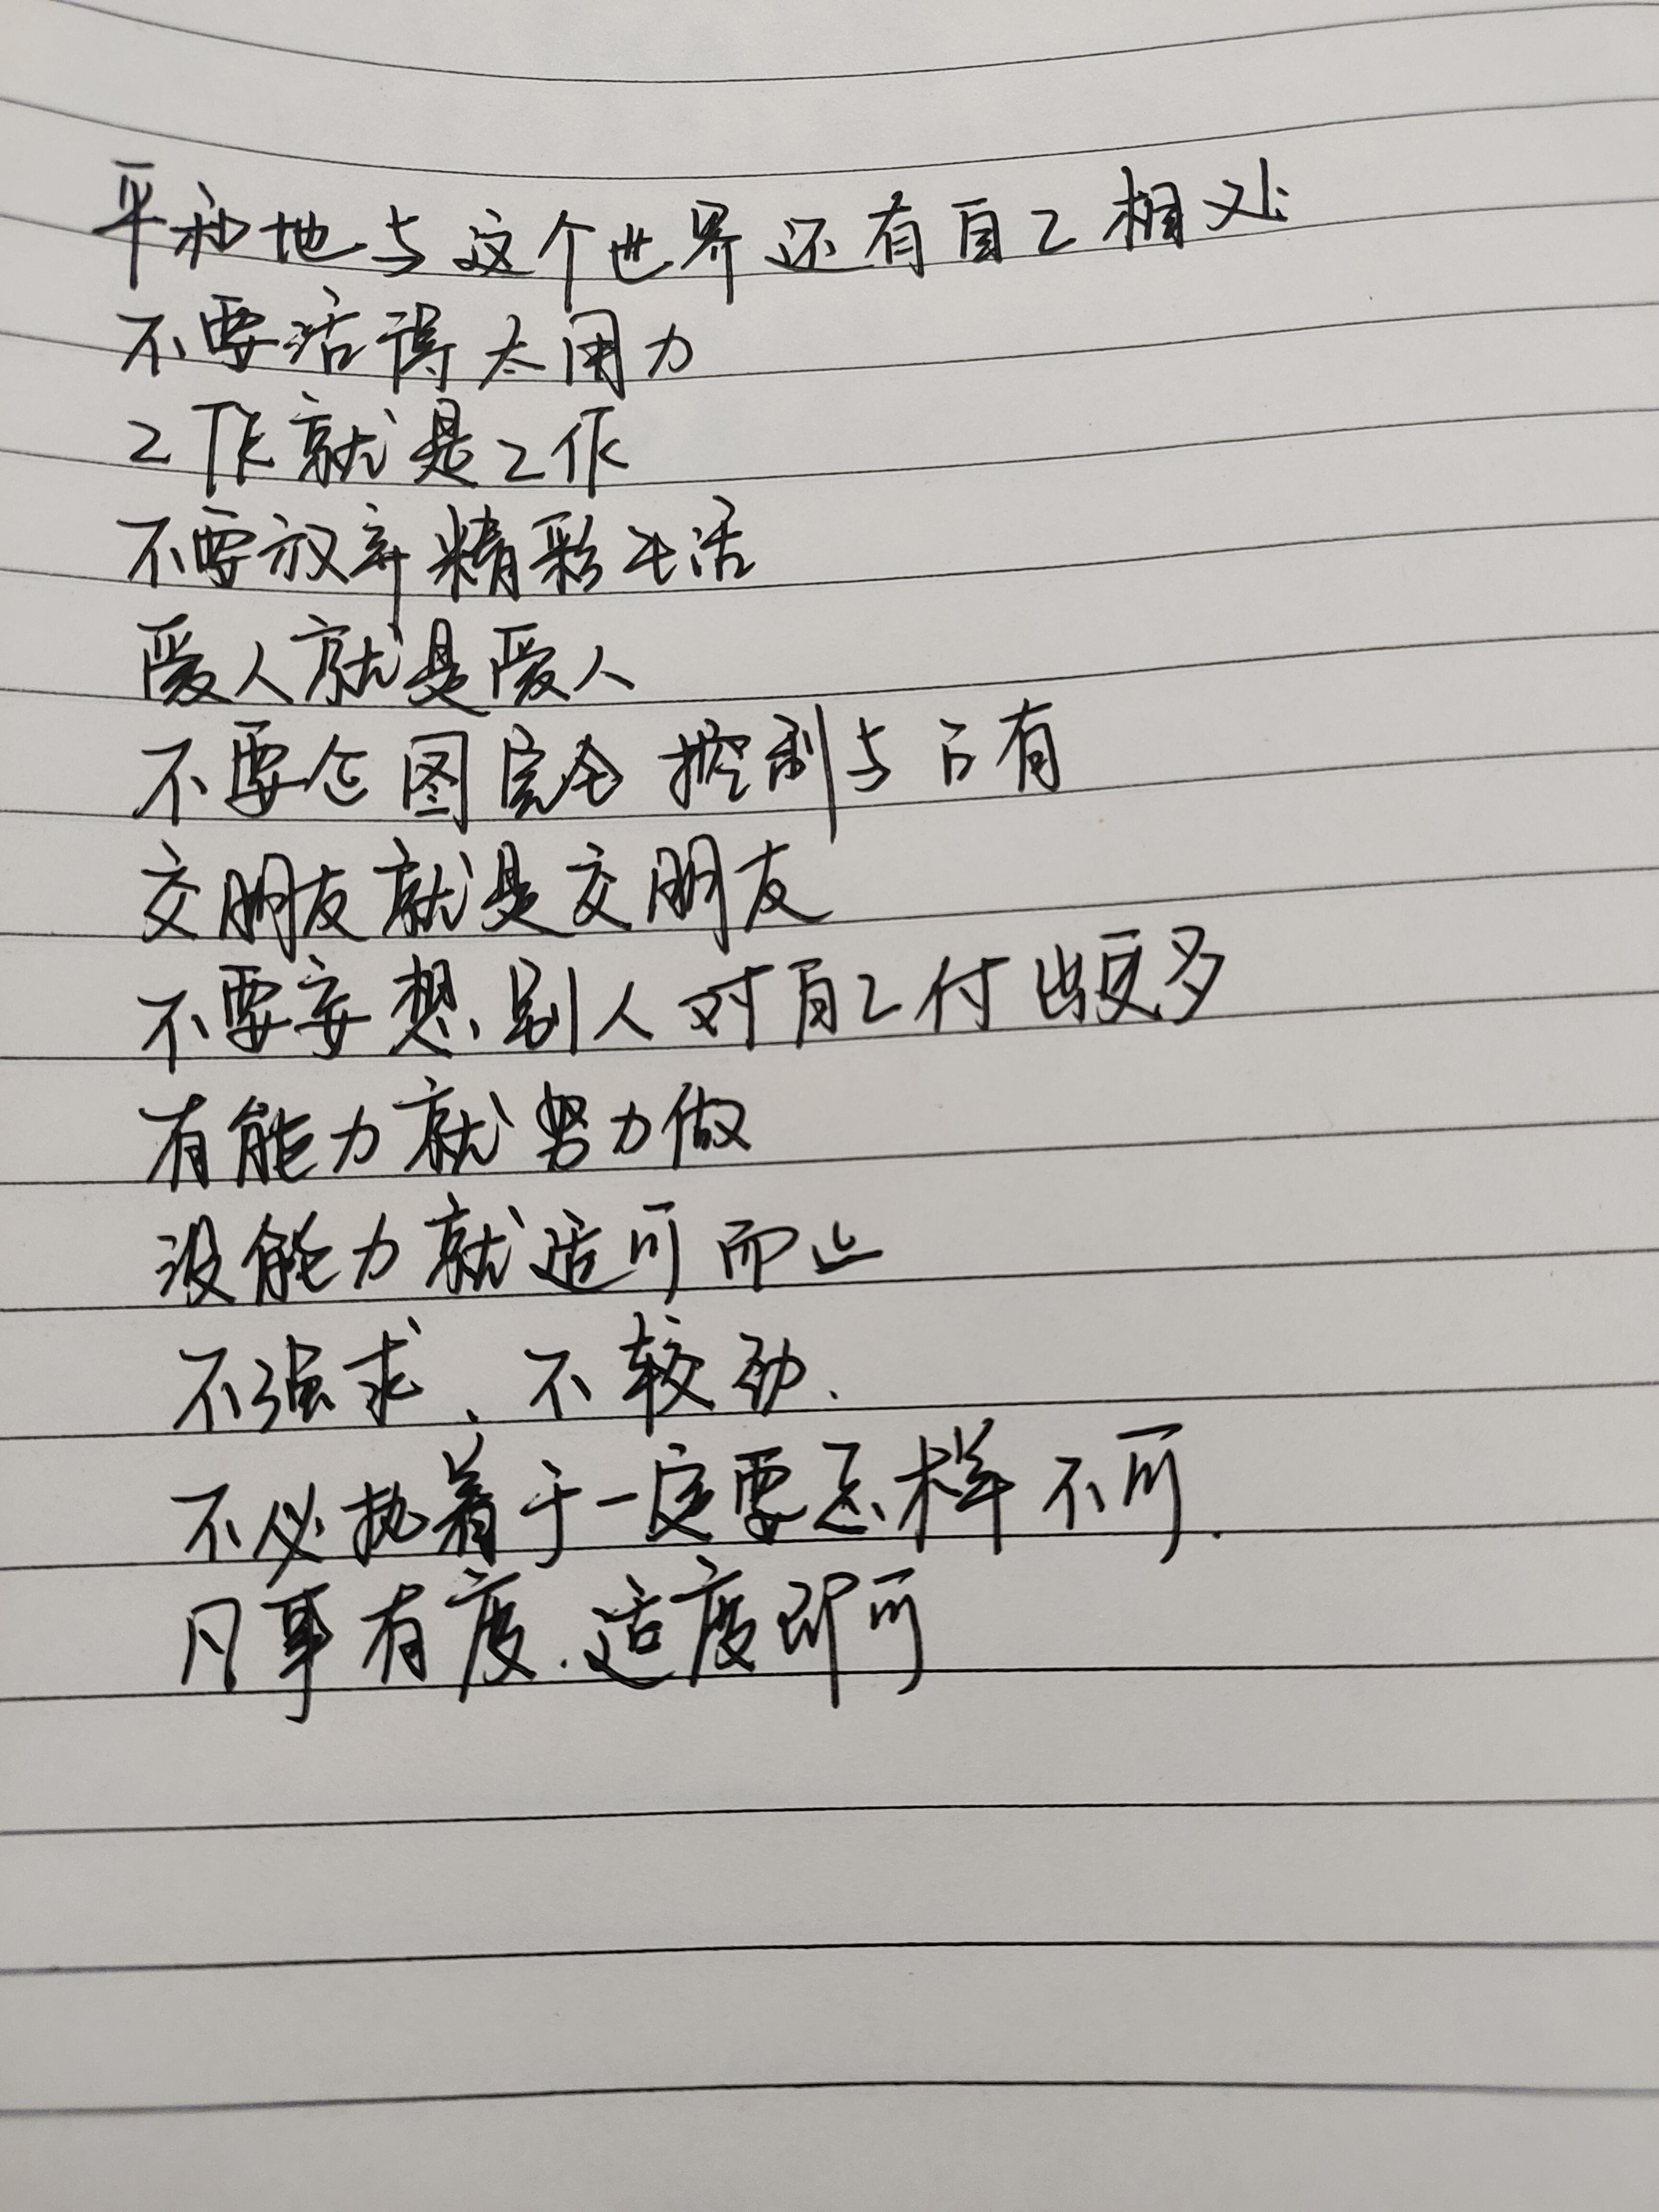 平和地与这个世界还有自己相处
不要活得太用力
工作就是工作
不要放弃精彩生活
爱人就是爱人
不要企图完全控制与占有
交朋友就是交朋友
不要妄想别人对自己付出更多
有能力就努力做
没能力就适可而止
不强求、不较劲.
不必执着于一定要怎样不可.
凡事有度.适度即可